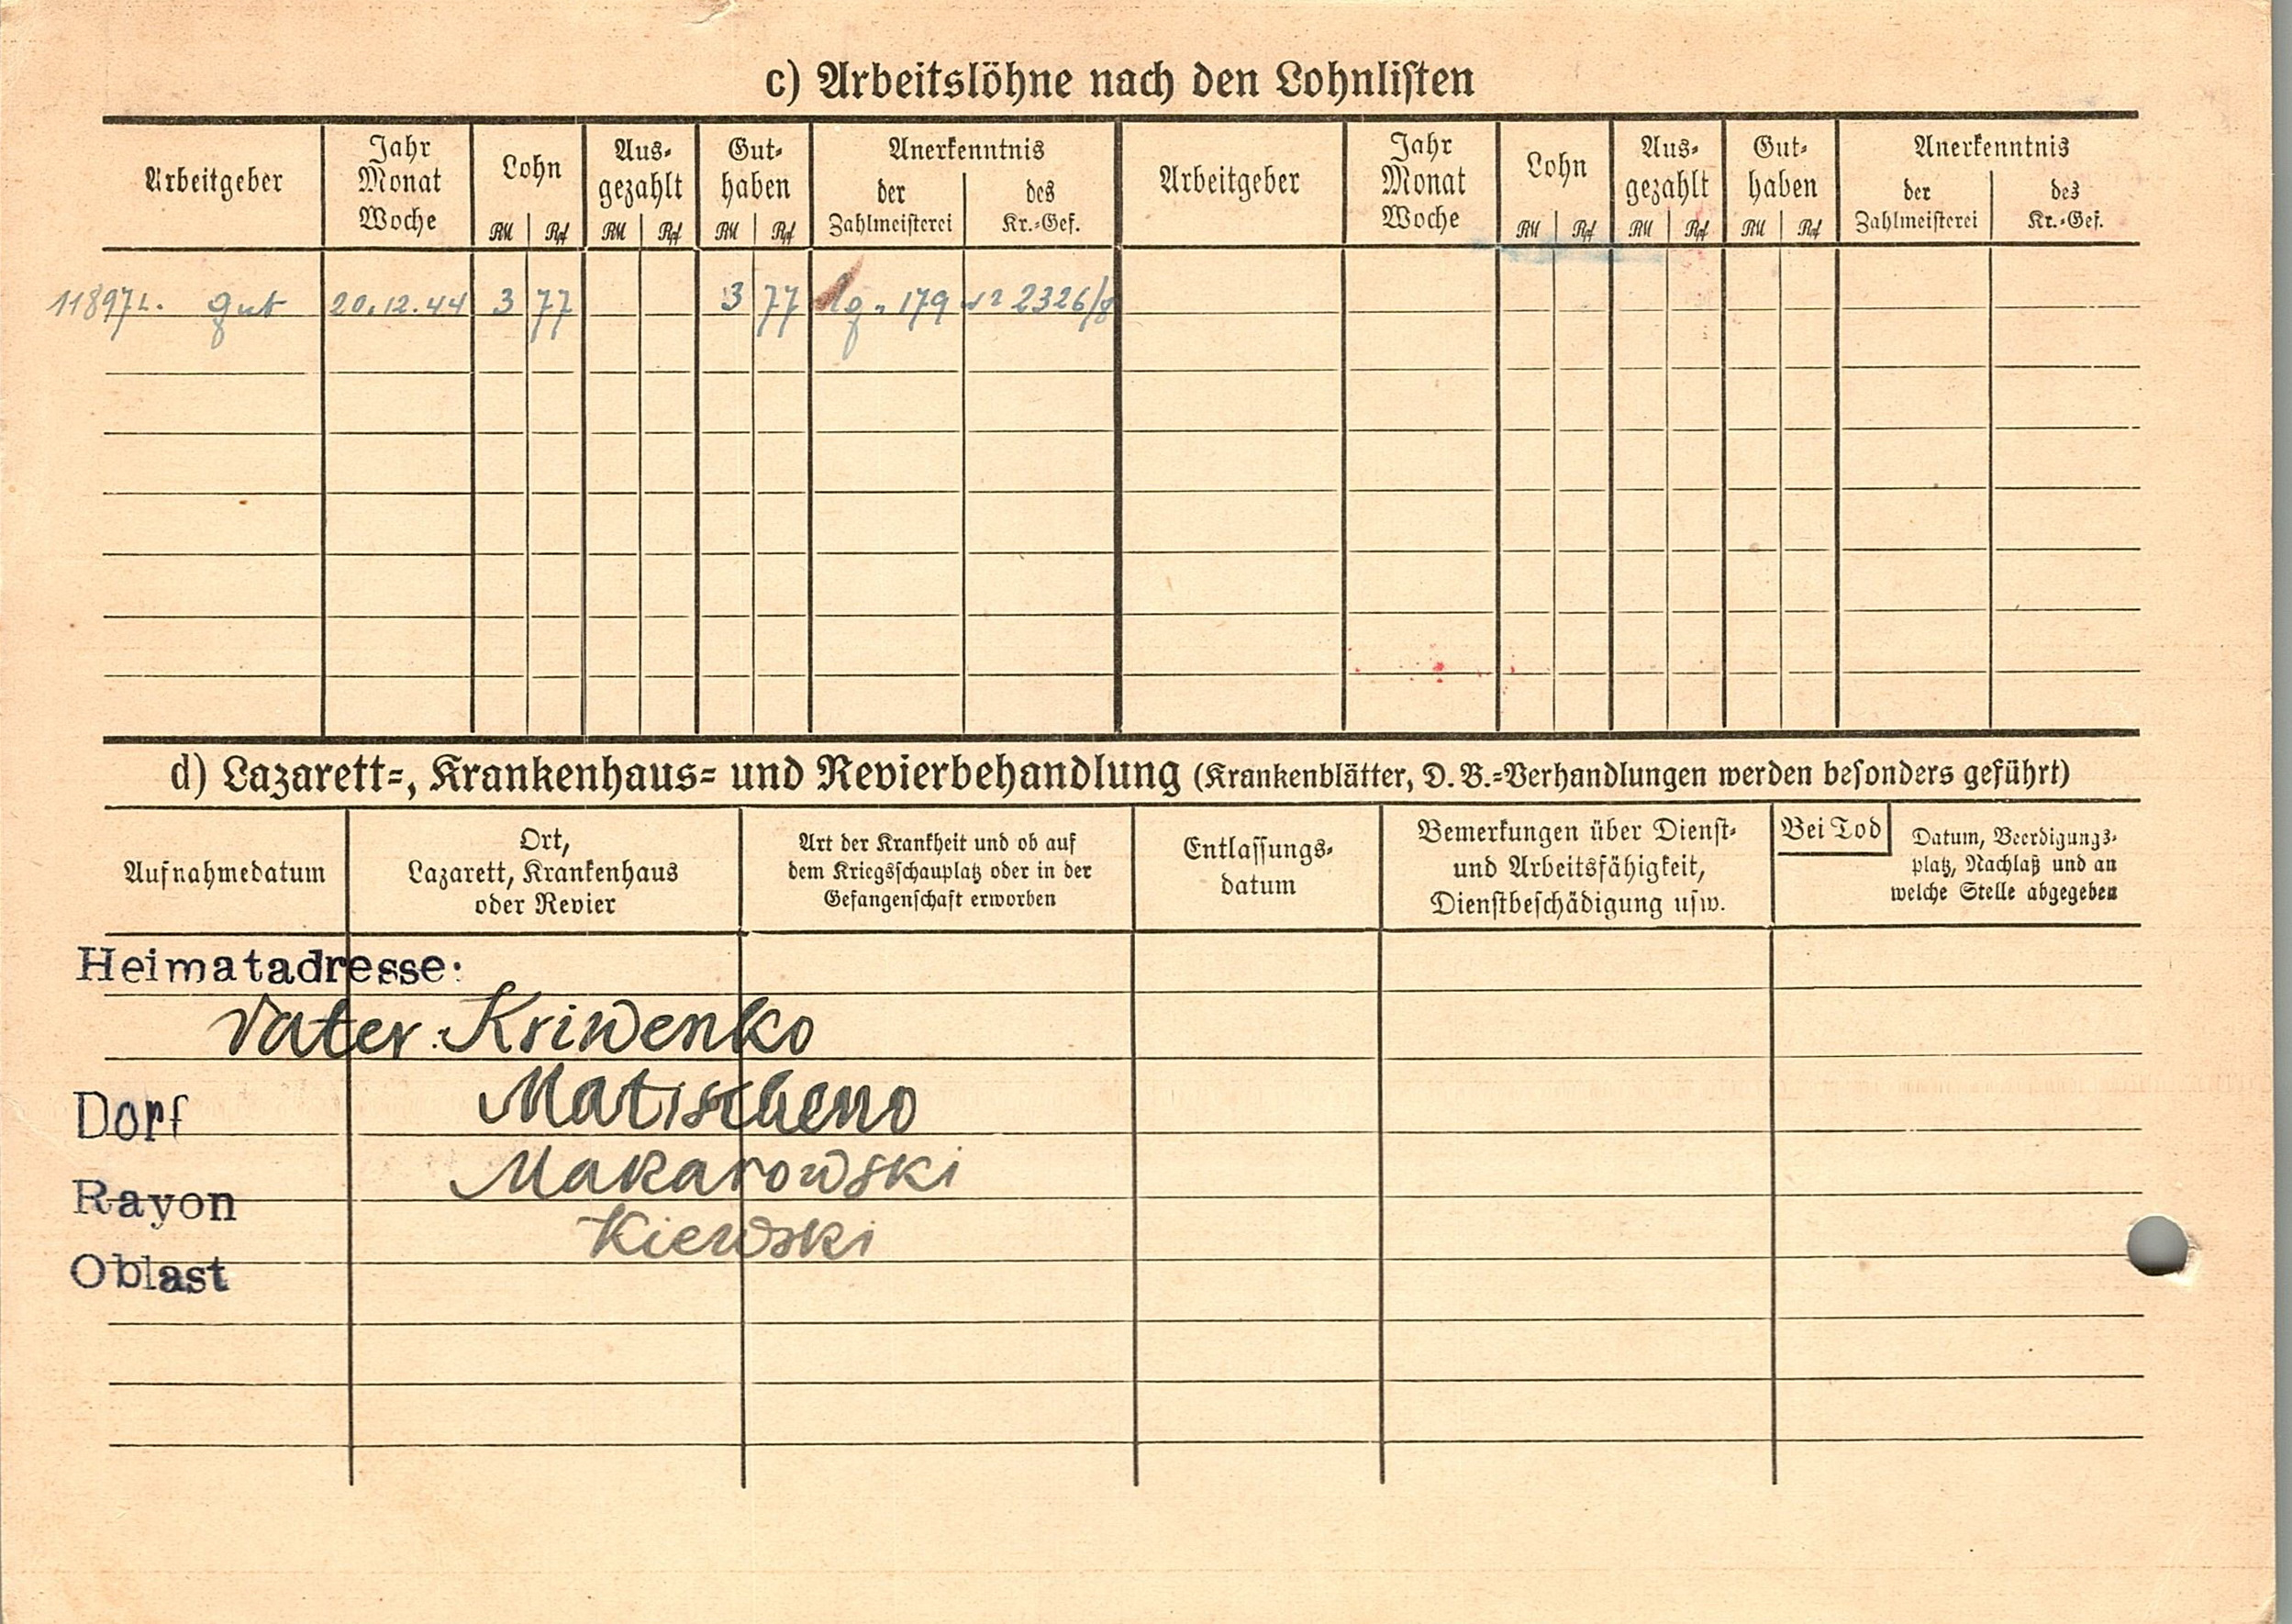 c) Arbeitslöhne nach den Lohnlisten
Arbeitgeber
Jahr
Monat
Woche
Lohn
RM Rpf
Aus-
gezahlt
RM Rpf
Gut-
haben
RM Rpf
Anerkenntnis
der
Zahlmeisterei
des
Kr.-Gef.
Arbeitgeber
Jahr
Monat
Woche
Lohn
RM Rpf
Aus-
gezahlt
RM Rpf
Gut-
haben
RM Rpf
Anerkenntnis
der
Zahlmeisterei
des
Kr.-Gef.
11897L. gut 20.12.44 3 77 3 77 179 2326/
d) Lazarett-, Krankenhaus- und Revierbehandlung (Krankenblätter, D. B.-Verhandlungen werden besonders geführt)
Aufnahmedatum
Ort,
Lazarett, Krankenhaus
oder Revier
Art der Krankheit und ob auf
dem Kriegsschauplatz oder in der
Gefangenschaft erworben
Entlassungs-
datum
Bemerkungen über Dienst-
und Arbeitsfähigkeit,
Dienstbeschädigung usw.
Bei Tod
Datum, Beerdigungs-
platz, Nachlaß und an
welche Stelle abgegeben
Heimatadresse:
Vater Kriwenko
Dorf Matischeno
Rayon Makarowski
Oblast Kiewski